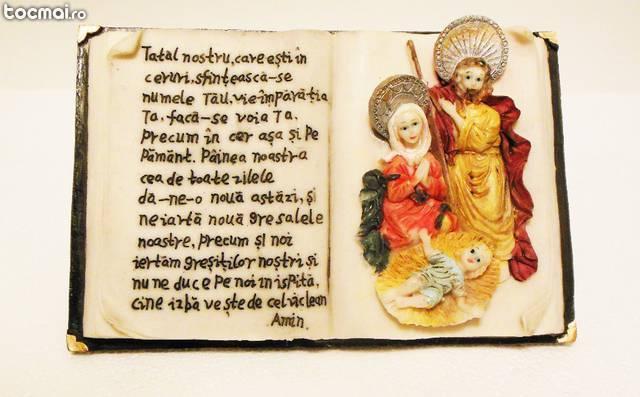 tocmai.ro
Tatal nostru, care ești în
ceruri, sfințească-se
numele Tău, vie împărăția
Ta, facă-se voia Ta,
Precum în cer așa și Pe
Pământ. Pâinea noastra
cea de toate zilele
dă-ne-o nouă astăzi, și
ne iartă nouă gresalele
noastre, precum și noi
iertăm greșiților noștri și
nu ne duce Pe noi in ispită,
cine izbă vește de cel văclean
Amin.